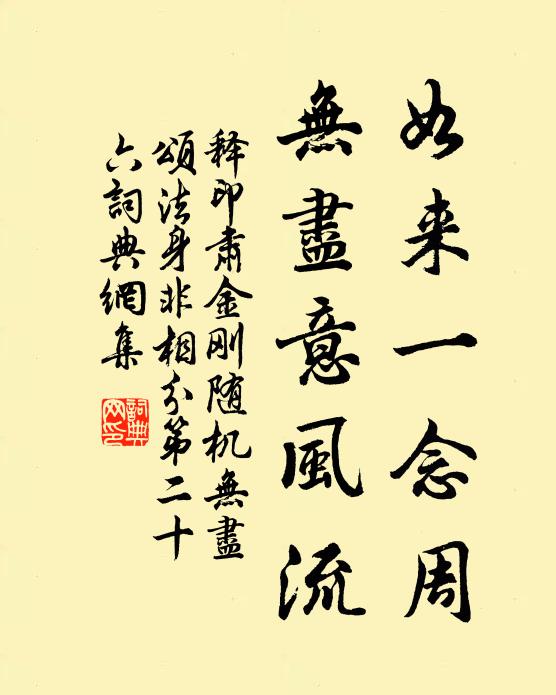 如来一念周
無盡意風流
释印肃金刚随机無盡
頌法身非相分第二十
六詞典網集
詞典網印